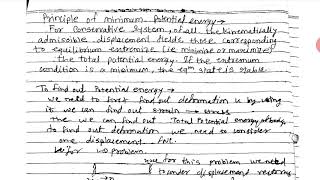 Principle of minimum Potential energy →
For Conservative System, of all the kinematically
admissible displacement fields those corresponding
to equilibrium extremize (i.e minimize or maximize)
the total potential energy. If the extremum
condition is a minimum, the eqm state is stable
To find out Potential energy →
we need to first find out deformation u by using
it we can find out strain → stress
The we can find out Total Potential energy
to find out deformation we need to consider
one displacement fnc.
for this problem we need
to under displacement